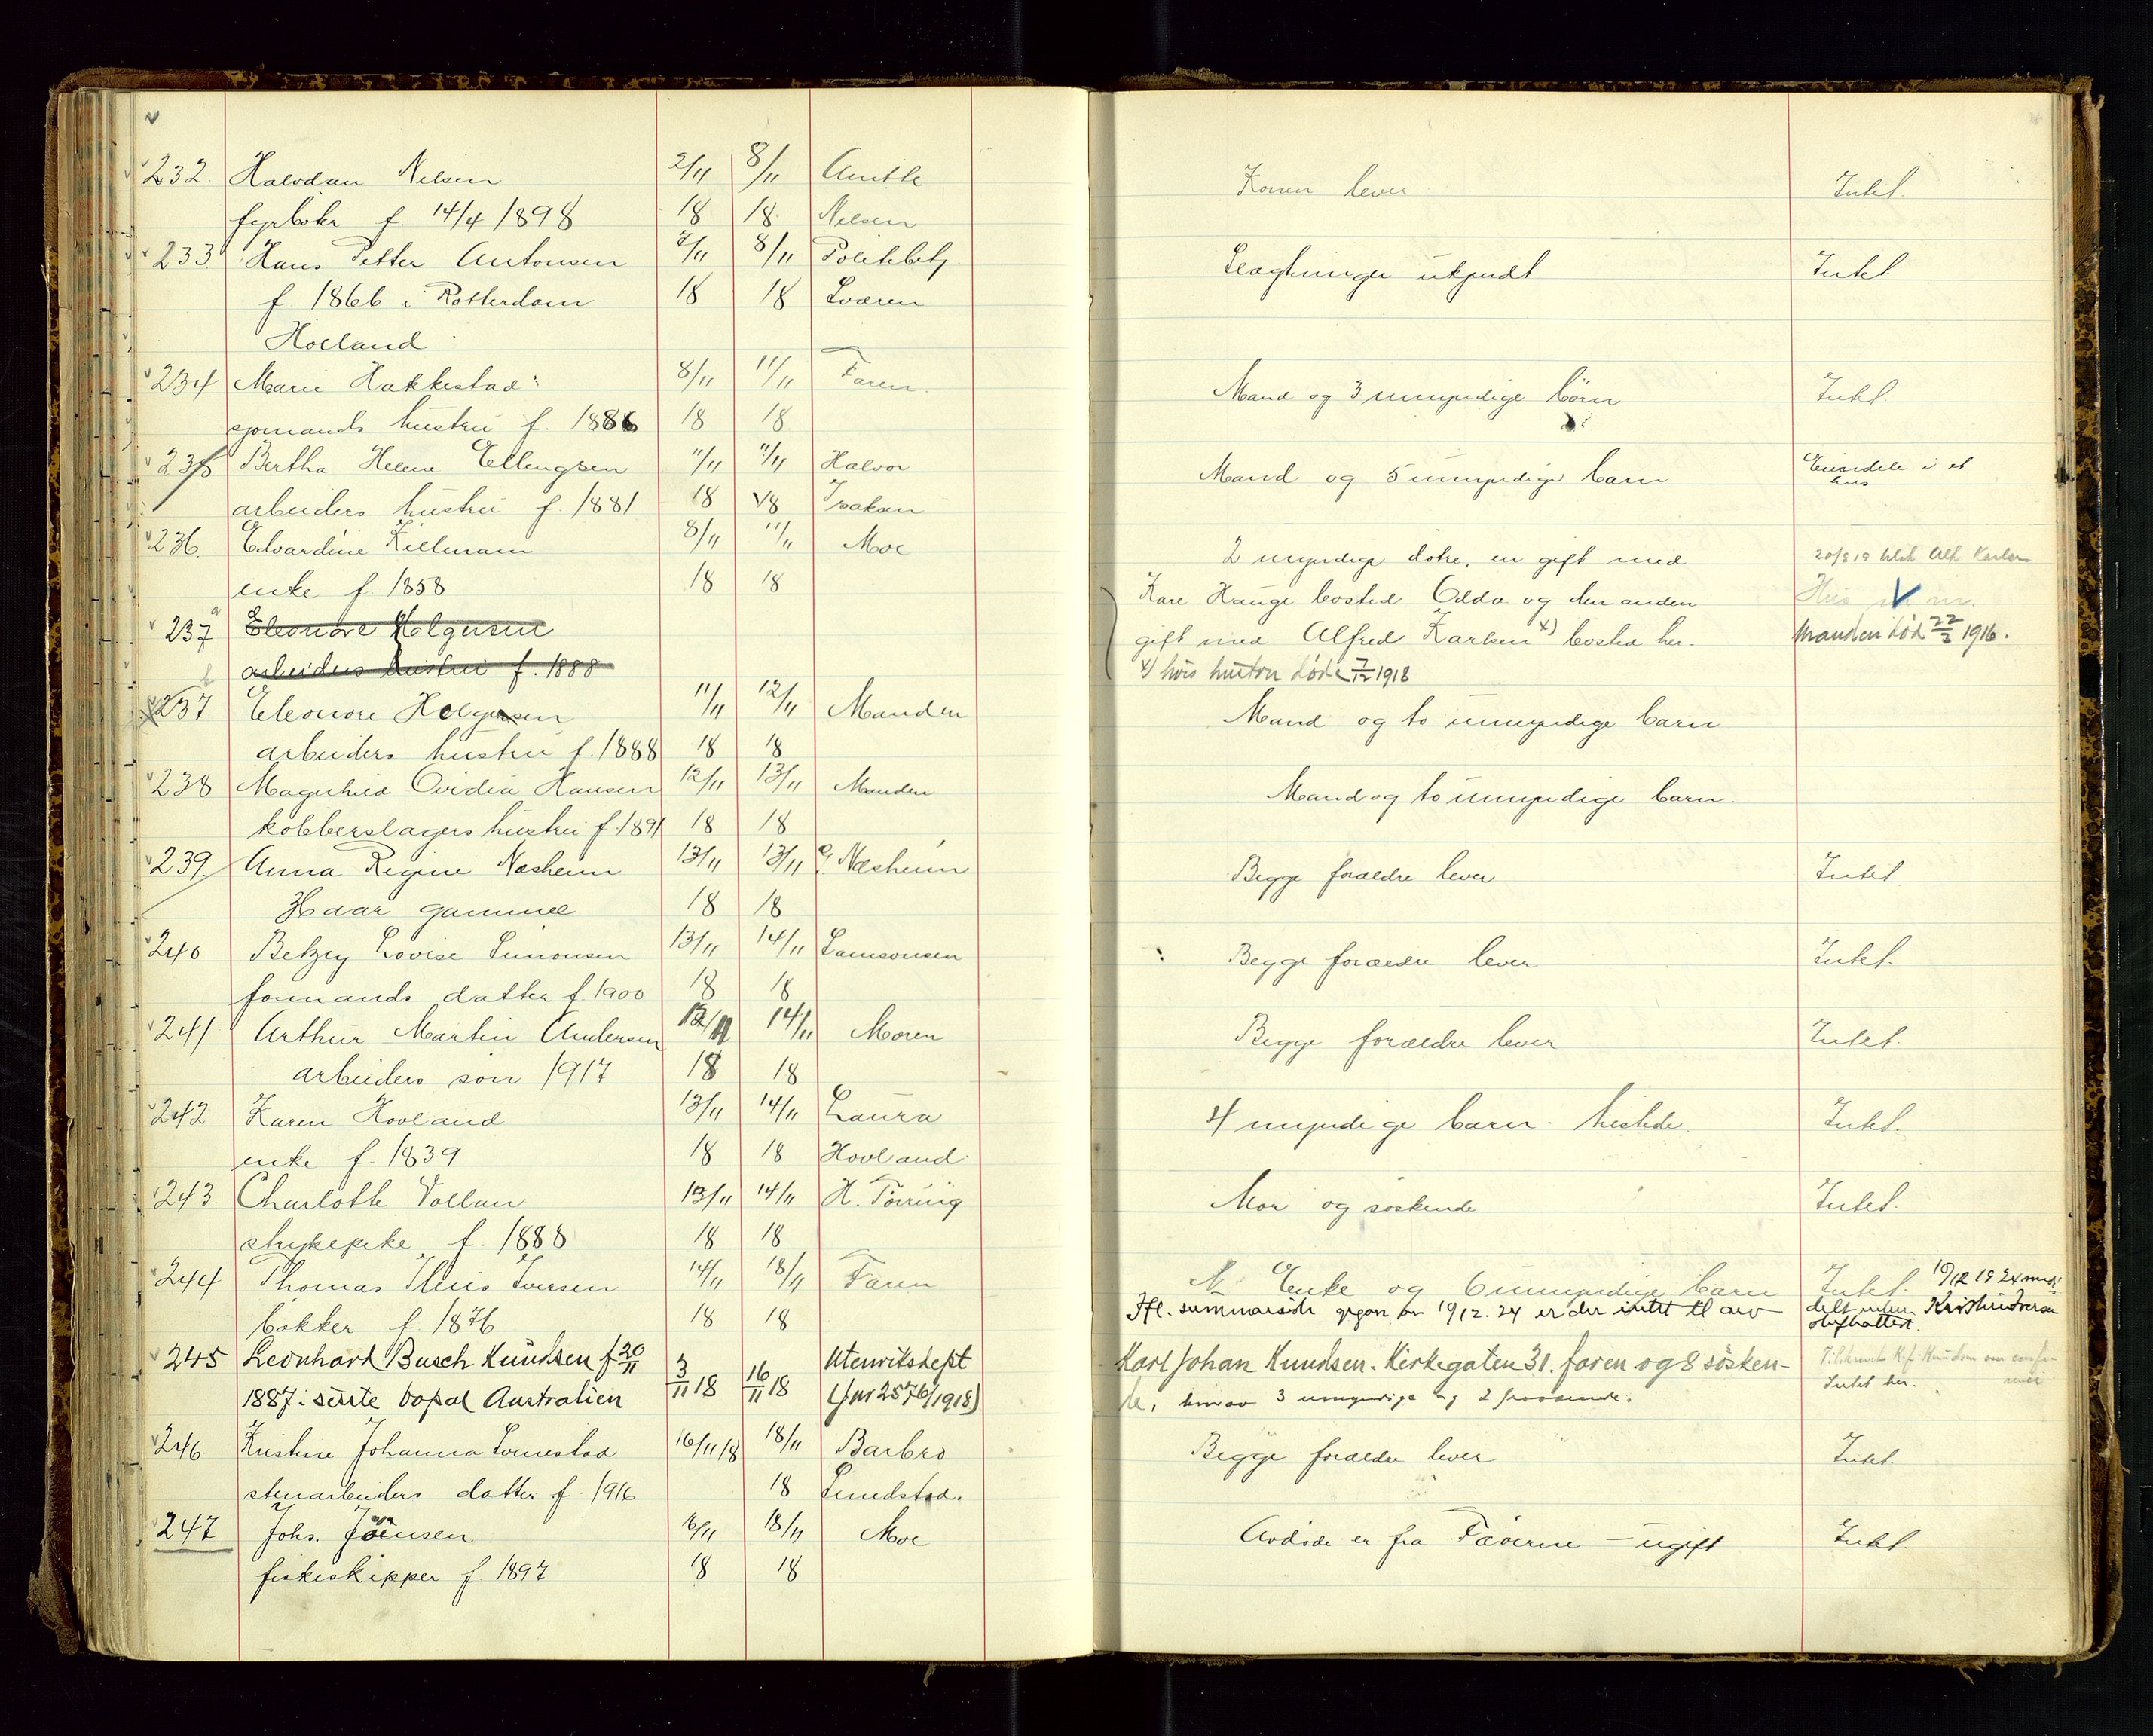 232. Halvdan Nilsen 2/11 8/11 Anitte Konen lever Intet.
fyrbøter f. 14/4 1898 18 18 Nilsen
233 Hans Petter Antonsen 7/11 8/11 Politibetj. Slægtninger ukjendt Intet
f 1866 i Rotterdam 18 18 Sværen
Holland
234 Marie Hakkestad 8/11 11/11 Faren Mand og 3 umyndige börn Intet.
sjömands hustru f. 1886 18 18
235 Bertha Helene Ellingsen 11/11 11/11 Halvor Mand og 5 umyndige barn Eiendele i et hus
arbeiders hustru f. 1881 18 18 Isaksen
236. Edvardine Killmam 8/11 11/11 Moe 2 myndige døtre, en gift med 20/8 19 Alf. Karlsen
enke f. 1858 18 18 Kare Hauge bosted Odda og den anden
237 a Eleonore Holgersen gift med Alfred Karlsen x) bosted her. Manden död 22/2 1916.
arbeiders hustru f. 1888 x) hvis hustru döde 7/12 1918
237 Eleonore Holgersen 11/11 12/11 Manden Mand og to umyndige barn
arbeiders hustru f. 1888 18 18
238 Magnhild Ovidia Hansen 12/11 13/11 Manden Mand og to umyndige barn.
kobberslagers hustru f. 1891 18 18
239. Anna Regine Næsheim 13/11 13/11 G. Næsheim Begge forældre lever Intet.
aar gammel 18 18
240 Betzy Lovise Simonsen 13/11 14/11 Samsonsen Begge forældre lever Intet.
formands datter f 1900 18 18
241 Arthur Martin Andersen 12/11 14/11 Moren Begge forældre lever Intet.
arbeiders sön 1917 18 18
242 Karen Hovland 13/11 14/11 Laura 4 myndige barn tilstede. Intet.
enke f. 1839 18 18 Hovland
243. Charlotte Vollan 13/11 14/11 H. Törring Mor og söskende Intet.
strykepike f. 1888 18 18
244 Thomas Thuis Iversen 14/11 18/11 Faren Enke og 6 umyndige barn Intet. 19/12 1924 medd
bakker f. 1876 18 18 Ifl. summarisk opgave av 19/12. 24 er der intet til arv delt
245 Leonhard Busch Knudsen f 20/11 3/11 18 16/11 18 Utenriksdept Karl Johan Knudsen. Kirkegaten 31. faren og 8 søsken-
1887. sidste bopæl Australien (Jnr 2576/1918) de, hvorav 3 umyndige og 2 fraværende. Intet her.
246 Kristine Johanna Lunestad 16/11 18 18/11 Barbro Begge forældre lever Intet.
stenarbeiders datter f. 1916 18 Lundstad.
247 Johs. Joensen 16/11 18/11 Moe Avdøde er fra Færøerne – ugift Intet.
fiskeskipper f. 1897 18 18